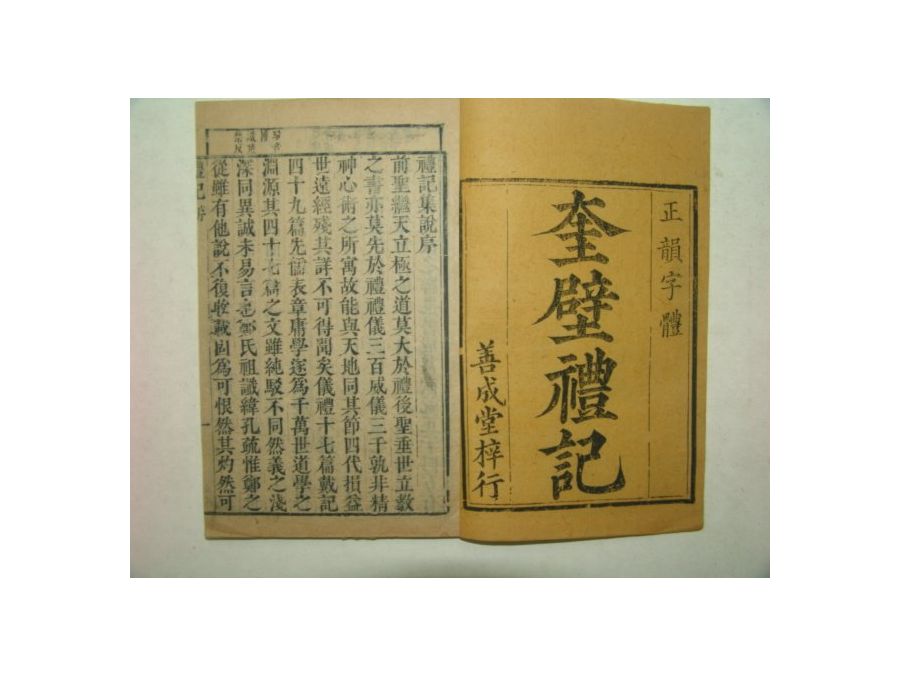 正韻字體
奎壁禮記
善成堂梓行
禮記集說序
前聖繼天立極之道莫大於禮後聖垂世立敎
之書亦莫先於禮禮儀三百威儀三千孰非精
神心術之所寓故能與天地同其節四代損益
世遠經殘其詳不可得聞矣儀禮十七篇戴記
四十九篇先儒表章庸學遂爲千萬世道學之
淵源其四十七篇之文雖純駁不同然義之淺
深同異誠未易言也鄭氏祖讖緯孔疏惟鄭之
從雖有他說不復收載固爲可恨然其灼然可
禮記序